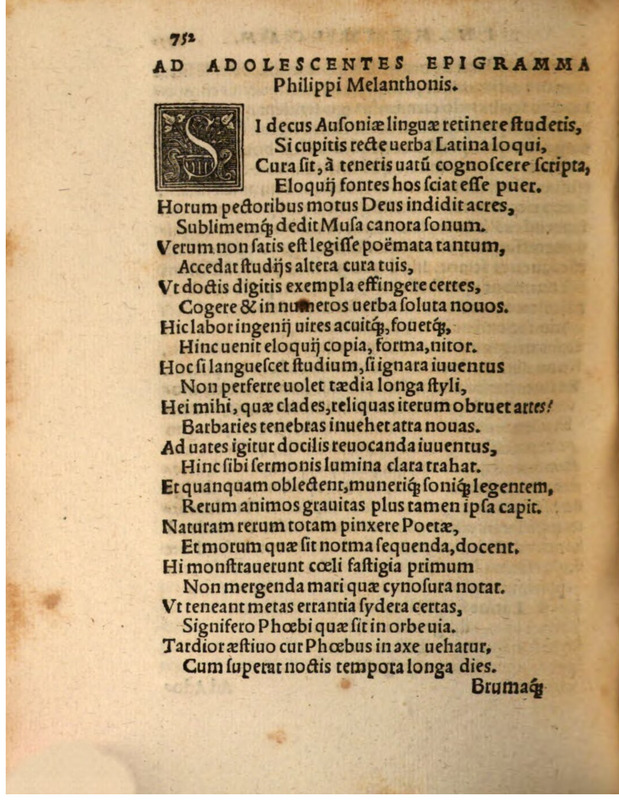 752
AD ADOLESCENTES EPIGRAMMA
Philippi Melanthonis.
SI decus Ausoniæ linguæ retinere studetis,
Si cupitis recte uerba Latina loqui,
Cura sit, à teneris uatũ cognoscere scripta,
Eloquij fontes hos sciat esse puer.
Horum pectoribus motus Deus indidit acres,
Sublimemq́; dedit Musa canora sonum.
Verum non satis est legisse poëmata tantum,
Accedat studijs altera cura tuis,
Vt doctis digitis exempla effingere certes,
Cogere & in numeros uerba soluta nouos.
Hic labor ingenij uires acuitq́;, fouetq́;,
Hinc uenit eloquij copia, forma, nitor.
Hoc si languescet studium, si ignara iuuentus
Non perferre uolet tædia longa styli,
Hei mihi, quæ clades, reliquas iterum obruet artes?
Barbaries tenebras inuehet atra nouas.
Ad uates igitur docilis reuocanda iuuentus,
Hinc sibi sermonis lumina clara trahat.
Et quanquam oblectent, muneriq́; soniq́; legentem,
Rerum animos grauitas plus tamen ipsa capit.
Naturam rerum totam pinxere Poetæ,
Et morum quæ sit norma sequenda, docent.
Hi monstrauerunt cœli fastigia primum
Non mergenda mari quæ cynosura notat.
Vt teneant metas errantia sydera certas,
Signifero Phœbi quæ sit in orbe uia.
Tardior æstiuo cur Phœbus in axe uehatur,
Cum superat noctis tempora longa dies.
Brumaq́;